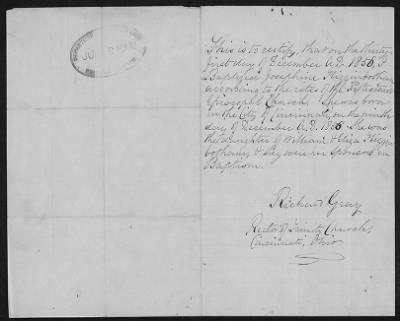 This is to certify, that on the thirty
first day of December A.D. 1856, I
Baptized Josephine Higginbotham
according to the rites of the Protestant
Episcopal Church. She was born
in the City of Cincinnati, on the ninth
day of December A.D. 1856. She was
the daughter of William & Eliza Higgin
botham, & they were her sponsors in
Baptism.
Richard Gray
Rector of Trinity Church,
Cincinnati, Ohio.